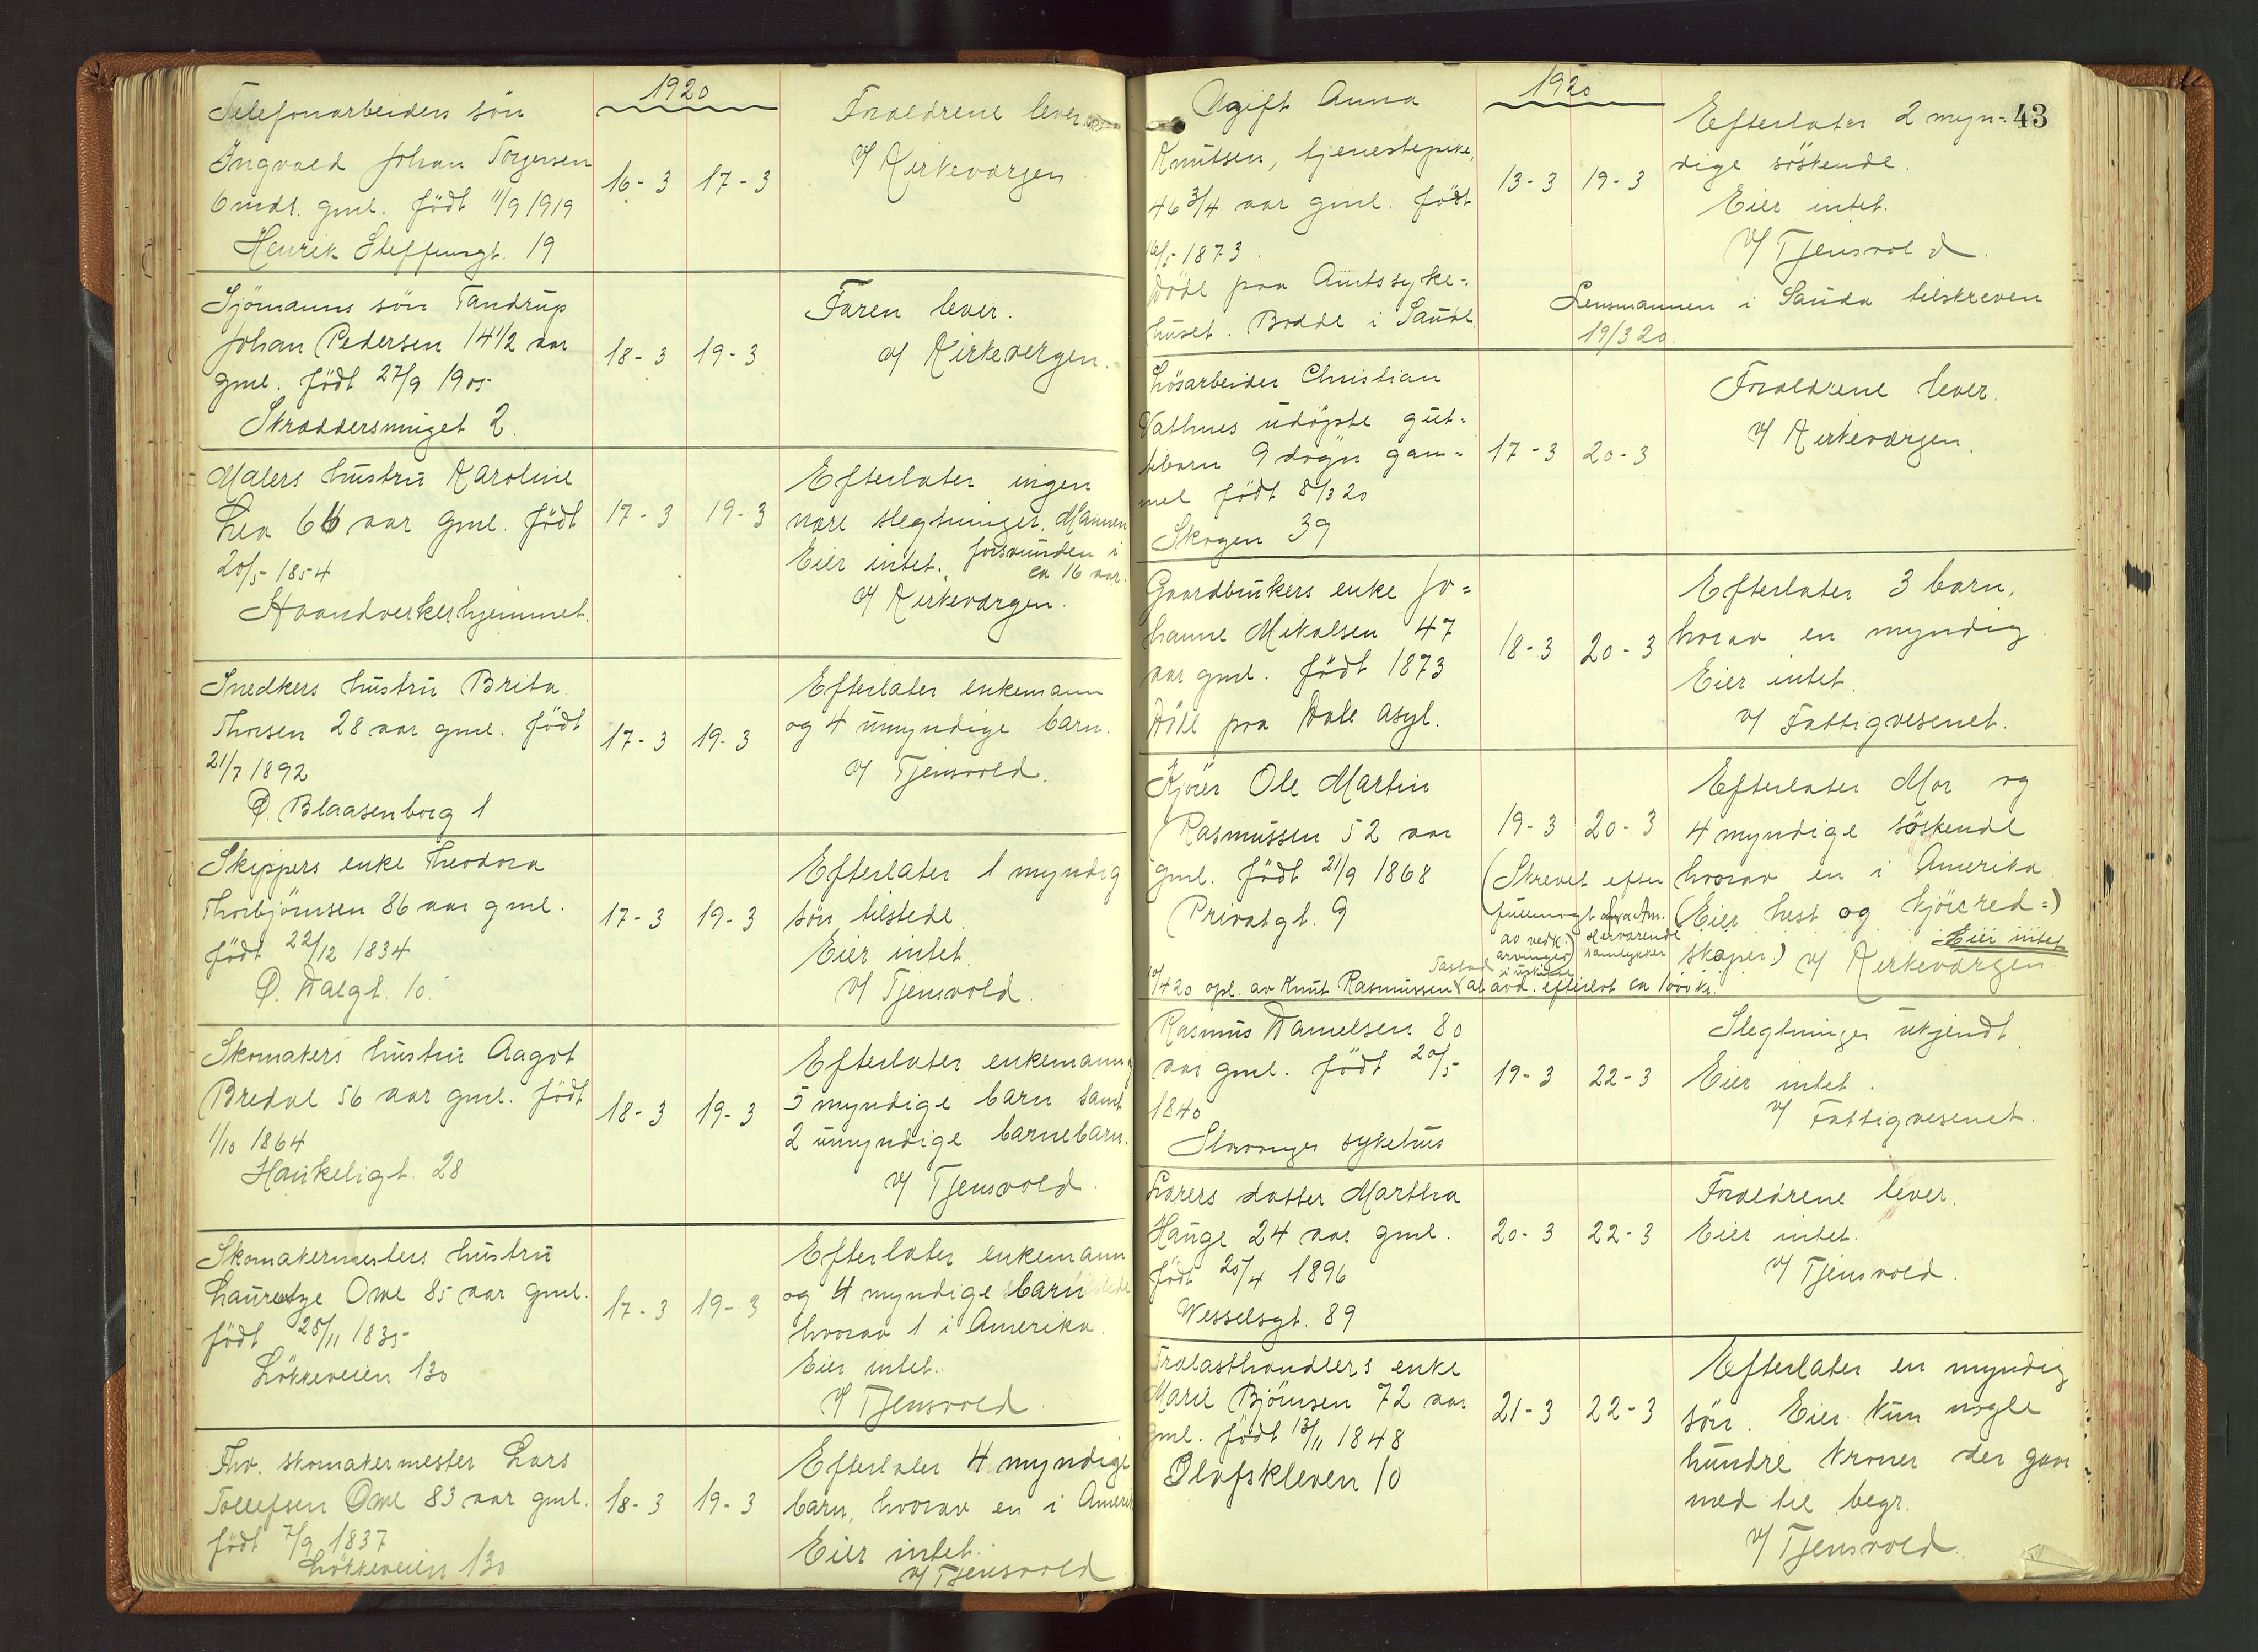 1920
Telefonarbeiders sön
Ingvald Johan Torgersen
6 mdr. gml. födt 11/9 1919
Henrik Steffensgt. 19
16-3 17-3
Foraeldrene lever
v/ Kirkevaergen.
Sjömanns sön Tandrup
Johan Pedersen 14 1/2 aar
gml. födt 27/9 1905
Skraeddersmuget 2.
18-3 19-3
Faren lever.
v/ Kirkevergen.
Malers hustru Karoline
Lea 66 aar gml. födt
20/5 1854
Haandverkerhjemmet.
17-3 19-3
Efterlater ingen
nære slegtninger. Mannen
Eier intet. forsvunden i
ca 16 aar.
v/ Kirkevaergen.
Snedkers hustru Brita
Thorsen 28 aar gml. födt
21/7 1892
Ø. Blaasenborg 1
17-3 19-3
Efterlater enkemann
og 4 umyndige barn.
v/ Tjensvold.
Skippers enke Theodora
Thorbjörnsen 86 aar gml.
födt 22/12 1834
Ø. Dalgt. 10.
17-3 19-3
Efterlater 1 myndig
sön tilstede
Eier intet.
v/ Tjensvold.
Skomakers hustru Aagot
Bredal 56 aar gml. födt
1/10 1864
Haukeligt. 28
18-3 19-3
Efterlater enkemann,
5 myndige barn samt
2 umyndige barnebarn.
v/ Tjensvold.
Skomakermesters hustru
Lauretze Owe 85 aar gml.
födt 28/11 1835
Lökkeveien 130
17-3 19-3
Efterlater enkemann
og 4 myndige barn
hvorav 1 i Amerika.
Eier intet.
v/ Tjensvold.
Fhv. skomakermester Lars
Tollefsen Owe 83 aar gml.
födt 7/9 1837
Lökkeveien 130
18-3 19-3
Efterlater 4 myndige
barn, hvorav en i Amerik
Eier intet.
v/ Tjensvold
1920
43
Ugift Anna
Knutsen, tjenestepike,
46 3/4 aar gml. födt
16/5 1873.
Döde paa Amtssyke=
huset. Bodde i Saude.
13-3 19-3
Efterlater 2 myn=
dige söskende.
Eier intet.
v/ Tjensvold.
Lensmannen i Sauda tilskreven
19/3 20.
Lösarbeider Christian
Vathnes udöpte gut=
tebarn 9 dögn gam=
mel födt 8/3 20
Skogen 39
17-3 20-3
Foraeldrene lever.
v/ Kirkevaergen.
Gaardbrukers enke Jo=
hanne Mikalsen 47
aar gml. födt 1873
Döde paa Dale asyl.
18-3 20-3
Efterlater 3 barn,
hvorav en myndig.
Eier intet.
v/ Fattigvesenet.
Kjörer Ole Martin
Rasmussen 52 aar
gml. födt 21/9 1868
Privatgt. 9
19-3 20-3
(Skrevet efter
fuldmagt fra Am.
av vedk. herværende
arvinger) samtykker
i uskiftet
Efterlater Mor og
4 myndige söskende
hvorav en i Amerika
(Eier hest og kjöred=)
skaper) v/ Kirkevaergen
Eier intet
10/4 20 opl. av Knut Rasmussen Tastad at avd. efterlot ca 1000 kr.
Rasmus Danielsen 80
aar gml. födt 20/5
1840
Stavanger sykehus
19-3 22-3
Slegtninger ukjendt.
Eier intet.
v/ Fattigvesenet.
Laerers datter Martha
Hauge 24 aar gml.
födt 25/4 1896
Wesselsgt. 89
20-3 22-3
Foraeldrene lever.
Eier intet.
v/ Tjensvold.
Traelasthandlers enke
Marie Björnsen 72 aar
gml. födt 13/11 1848
Olafskleven 10
21-3 22-3
Efterlater en myndig
sön. Eier kun nogle
hundre kroner der gaar
med til begr.
v/ Tjensvold.